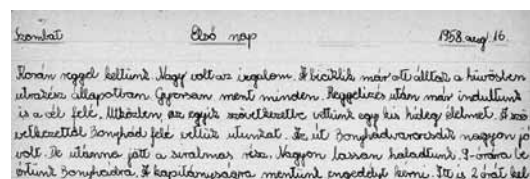 Szombat Első nap 1958 aug 16.
Korán reggel keltünk. Nagy volt az izgalom. A biciklik már ott álltak a hűvösben
utrakész állapotban. Gyorsan ment minden. Reggelizés után már indultunk
is a cél felé. Útközben, az egyik szövetkezetbe vettünk egy kis hideg élelmet. A szö
vetkezettől Bonyhád felé vettük utunkat. Az út Bonyhádvarasdig nagyon jó
volt. De utánna jött a siralmas rész. Nagyon lassan haladtunk. 9-órára é
rtünk Bonyhádra. A kapitányságra mentünk engedélyt kérni. Itt is 2 órát kel